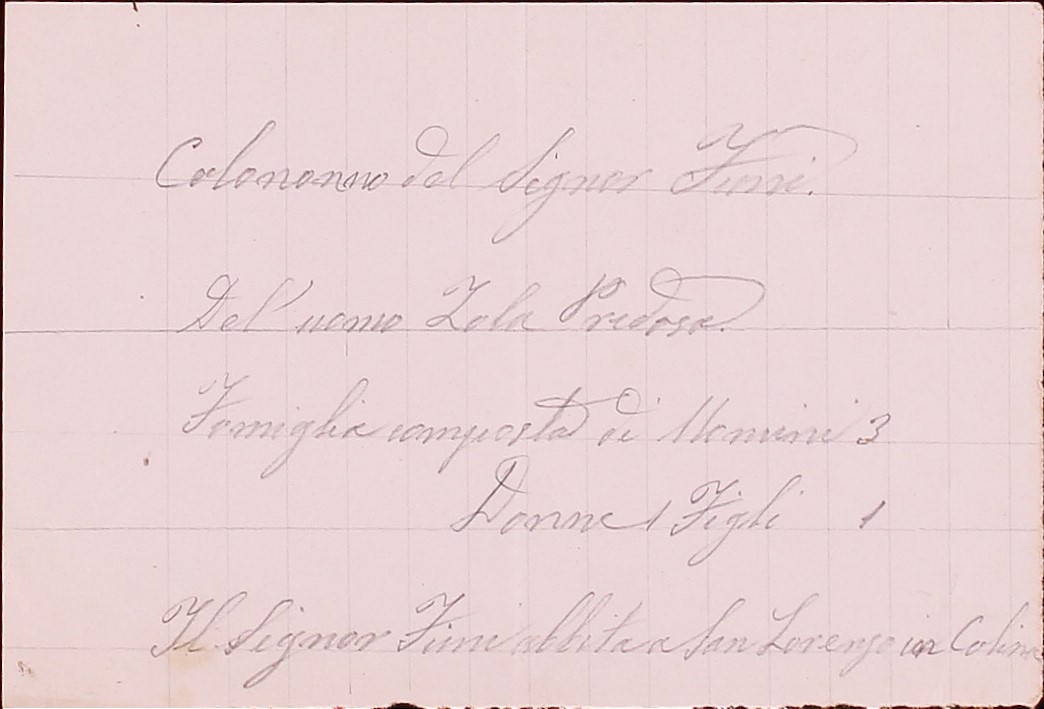 Colonanno del Signor Fini.
Del' uomo Zola Predosa.
Famiglia composta di Uomini 3
Donne 1 Figli 1
Il Signor Fini abbita a San Lorenzo in Colina